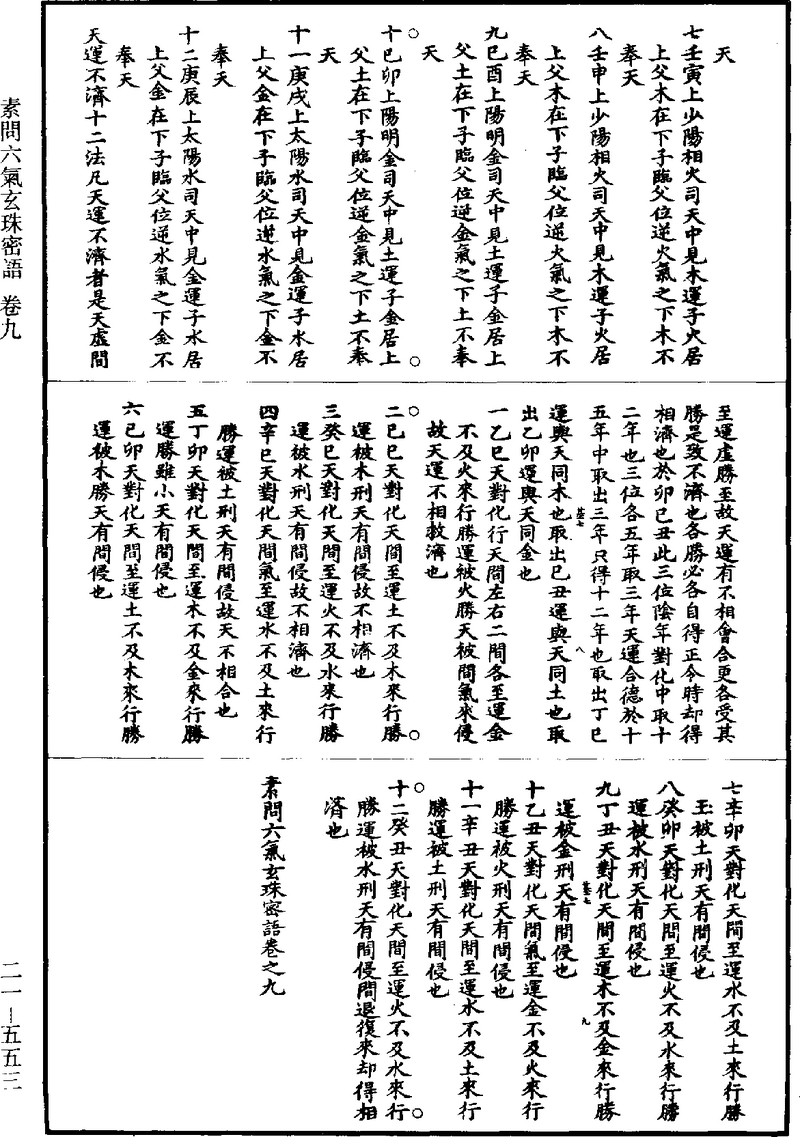 天
七壬寅上少陽相火司天中見木運子火居
上父木在下子臨父位逆火氣之下木不
奉天
八壬申上少陽相火司天中見木運子火居
上父木在下子臨父位逆火氣之下木不
奉天
九巳酉上陽明金司天中見土運子金居上
父土在下子臨父位逆金氣之下上不奉
天
十巳卯上陽明金司天中見土運子金居上
父土在下子臨父位逆金氣之下土不奉
天
十一庚戌上太陽水司天中見金運子水居
上父金在下子臨父位逆水氣之下金不
奉天
十二庚辰上太陽水司天中見金運子水居
上父金在下子臨父位逆水氣之下金不
奉天
天運不濟十二法凡天運不濟者是天虛間
至運虛勝至故天運有不相會合更各受其
勝是致不濟也各勝必各自得正令時却得
相濟也於卯巳丑此三位陰年對化中取十
二年也三位各五年取三年天運合德於十
五年中取出三年只得十二年也取出丁巳
運與天同木也取出巳丑運與天同土也取
出乙卯運與天同金也
一乙巳天對化行天間左右二間各至運金
不及火來行勝運被火勝天被間氣來侵
故天運不相救濟也
二巳巳天對化天間至運土不及木來行勝
運被木刑天有間侵故不相濟也
三癸巳天對化天間至運火不及水來行勝
運被水刑天有間侵故不相濟也
四辛巳天對化天間氣至運水不及土來行
勝運被土刑天有間侵故天不相合也
五丁卯天對化天間至運木不及金來行勝
運勝雖小天有間侵也
六巳卯天對化天間至運土不及木來行勝
運被木勝天有間侵也
七辛卯天對化天間至運水不及土來行勝
玉被土刑天有間侵也
八癸卯天對化天間至運火不及水來行勝
運被水刑天有間侵也
九丁丑天對化天間至運木不及金來行勝
運被金刑天有間侵也
十乙丑天對化天間氣至運金不及火來行
勝運被火刑天有間侵也
十一辛丑天對化天間至運水不及土來行
勝運被土刑天有間侵也
十二癸丑天對化天間至運火不及水來行
勝運被水刑天有間侵間退復來却得相
濟也
素問六氣玄珠密語卷之九
素問六氣玄珠密語 卷九
二一—五五三